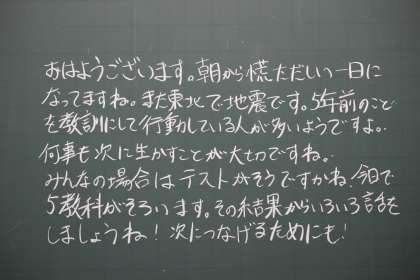 おはようございます。朝から慌ただしい一日に
なってますね。また東北で地震です。5年前のこと
を教訓にして行動している人が多いようですよ。
何事も次に生かすことが大切ですね。
みんなの場合はテストがそうですかね。今日で
5教科がそろいます。その結果からいろいろ話を
しましょうね！次につなげるためにも！